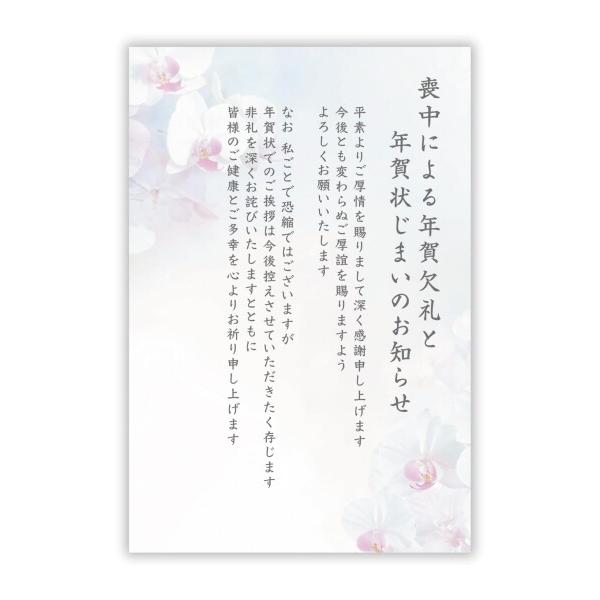 喪中による年賀欠礼と
年賀状じまいのお知らせ
平素よりご厚情を賜りまして深く感謝申し上げます
今後とも変わらぬご厚誼を賜りますよう
よろしくお願いいたします
なお 私ごとで恐縮ではございますが
年賀状でのご挨拶は今後控えさせていただきたく存じます
非礼を深くお詫びいたしますとともに
皆様のご健康とご多幸を心よりお祈り申し上げます